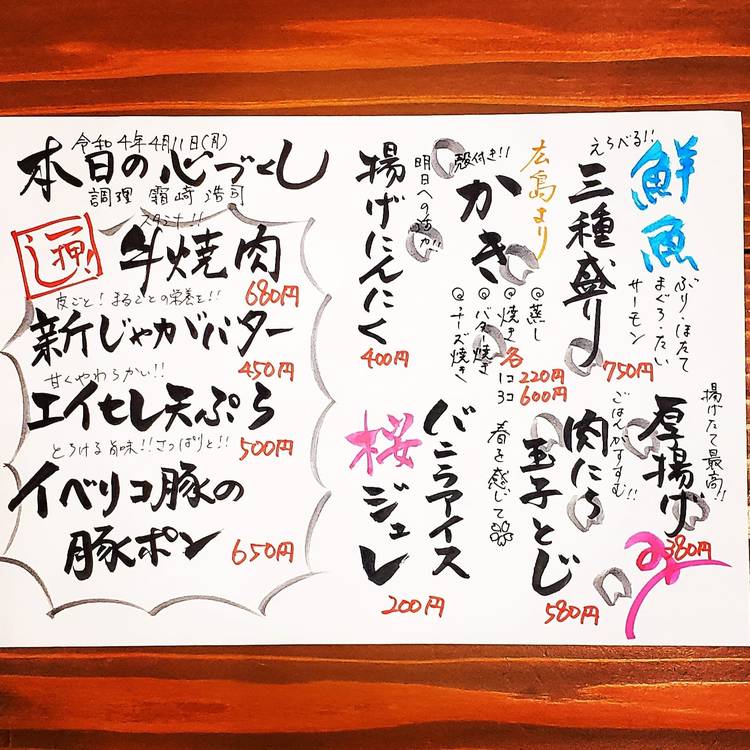 令和4年4月11日(月)
本日の心づくし
調理 霜崎 浩司
スタミナ!!
一押し!
牛焼肉
680円
皮ごと!まるごとの栄養を!!
新じゃがバター
450円
甘くやわらかい!!
エイヒレ天ぷら
500円
とろける旨味!!さっぱりと!!
イベリコ豚の
豚ポン
650円
鮮魚
えらべる!!
三種盛り
ぶり・ほたて
まぐろ・たい
サーモン
750円
広島より
殻付き!!
かき
@蒸し
@焼き
@バター焼き
@チーズ焼き
各
1コ 220円
3コ 600円
明日への活力!!
揚げにんにく
400円
揚げたて最高!!
厚揚げ
380円
ごはんがすすむ!!
肉にら
玉子とじ
580円
春を感じて
バニラアイス
桜ジュレ
200円